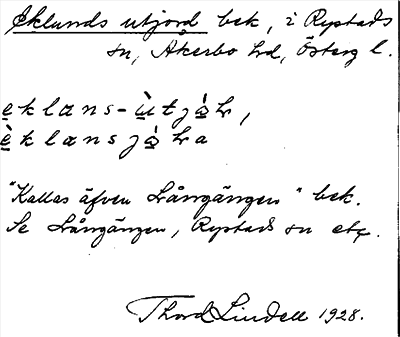 Eklunds utjord bek, i Rystads
sn, Åkerbo hd, Österg l.
èklans-ùtjὰɷ,
èklansjὰɷa
"Kallas äfven Långängen" bek.
Se Långängen, Rystads sn etc.
Thord Lindell 1928.